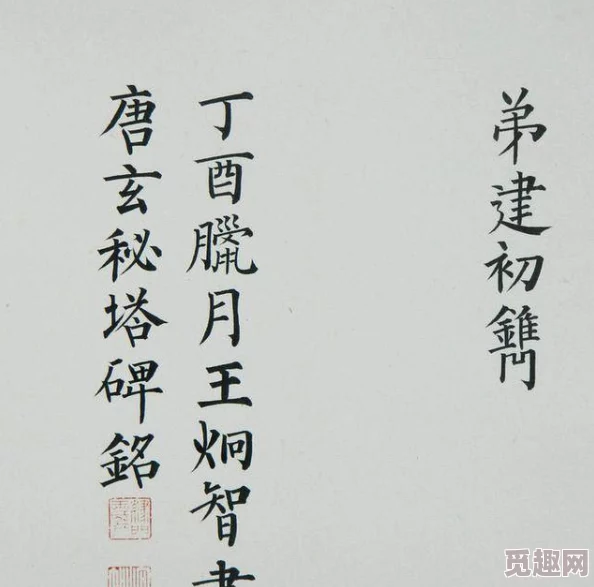 弟建初鐫
丁酉臘月王炯智書
唐玄秘塔碑銘
觅趣网